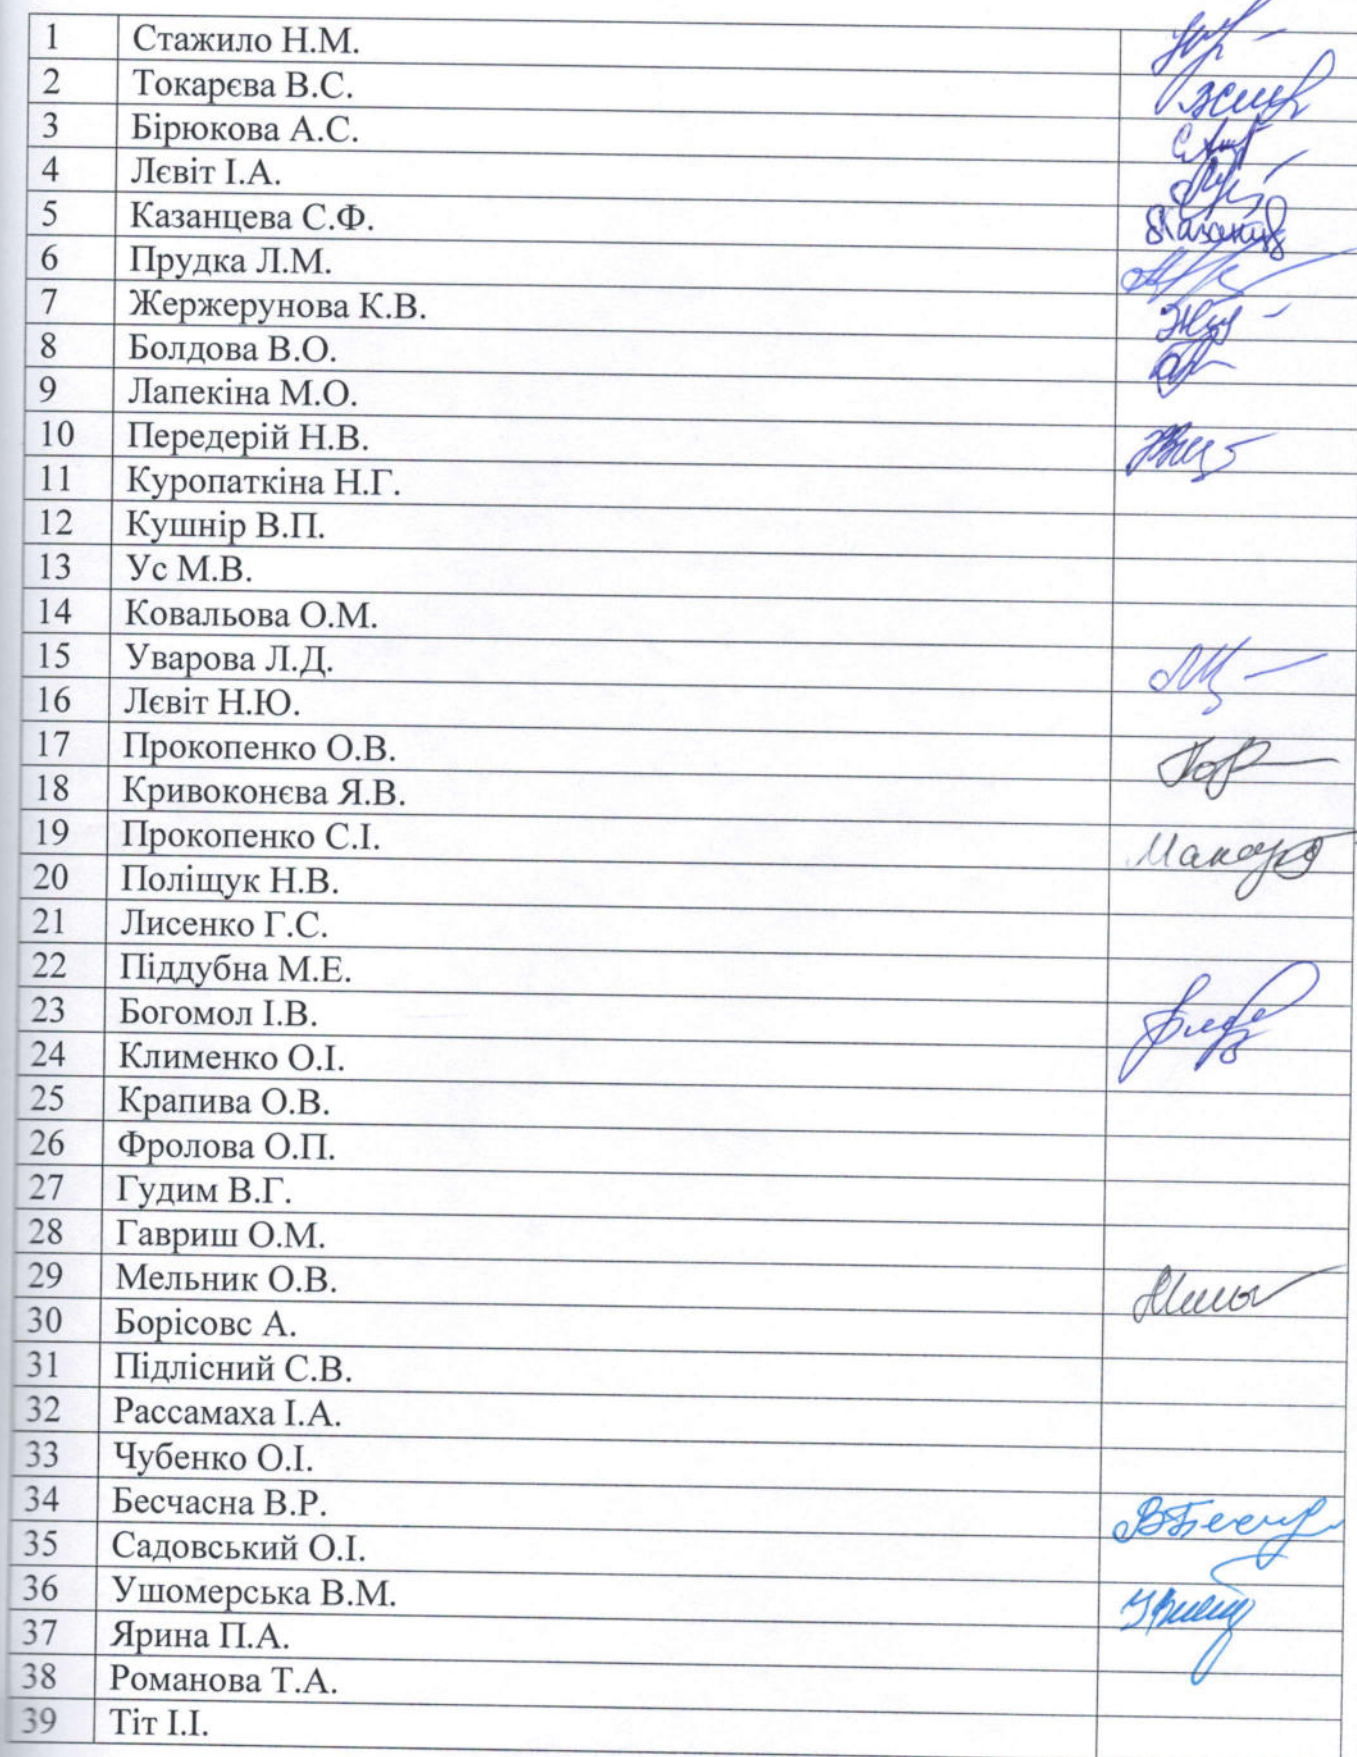 1 Стажило Н.М.
2 Токарєва В.С.
3 Бірюкова А.С.
4 Лєвіт І.А.
5 Казанцева С.Ф.
6 Прудка Л.М.
7 Жержерунова К.В.
8 Болдова В.О.
9 Лапекіна М.О.
10 Передерій Н.В.
11 Куропаткіна Н.Г.
12 Кушнір В.П.
13 Ус М.В.
14 Ковальова О.М.
15 Уварова Л.Д.
16 Лєвіт Н.Ю.
17 Прокопенко О.В.
18 Кривоконєва Я.В.
19 Прокопенко С.І.
20 Поліщук Н.В.
21 Лисенко Г.С.
22 Піддубна М.Е.
23 Богомол І.В.
24 Клименко О.І.
25 Крапива О.В.
26 Фролова О.П.
27 Гудим В.Г.
28 Гавриш О.М.
29 Мельник О.В.
30 Борісовс А.
31 Підлісний С.В.
32 Рассамаха І.А.
33 Чубенко О.І.
34 Бесчасна В.Р.
35 Садовський О.І.
36 Ушомерська В.М.
37 Ярина П.А.
38 Романова Т.А.
39 Тіт І.І.